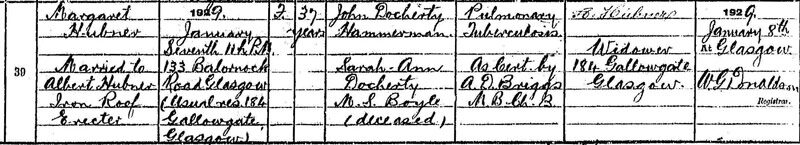 39
Margaret
Hubner
Married to
Albert Hubner
Iron Roof
Erecter
1929.
January
Seventh 11h. P.M.
133 Balornock
Road Glasgow
(Usual res. 184
Gallowgate,
Glasgow)
F.
37
years
John Docherty
Hammerman.
Sarah-Ann
Docherty
M.S. Boyle
(deceased)
Pulmonary
Tuberculosis.
As Cert. by
A.D. Briggs
M.B. Ch. B.
Hubner
Widower
184 Gallowgate
Glasgow.
1929.
January 8th
At Glasgow.
W.G. Donaldson
Registrar.